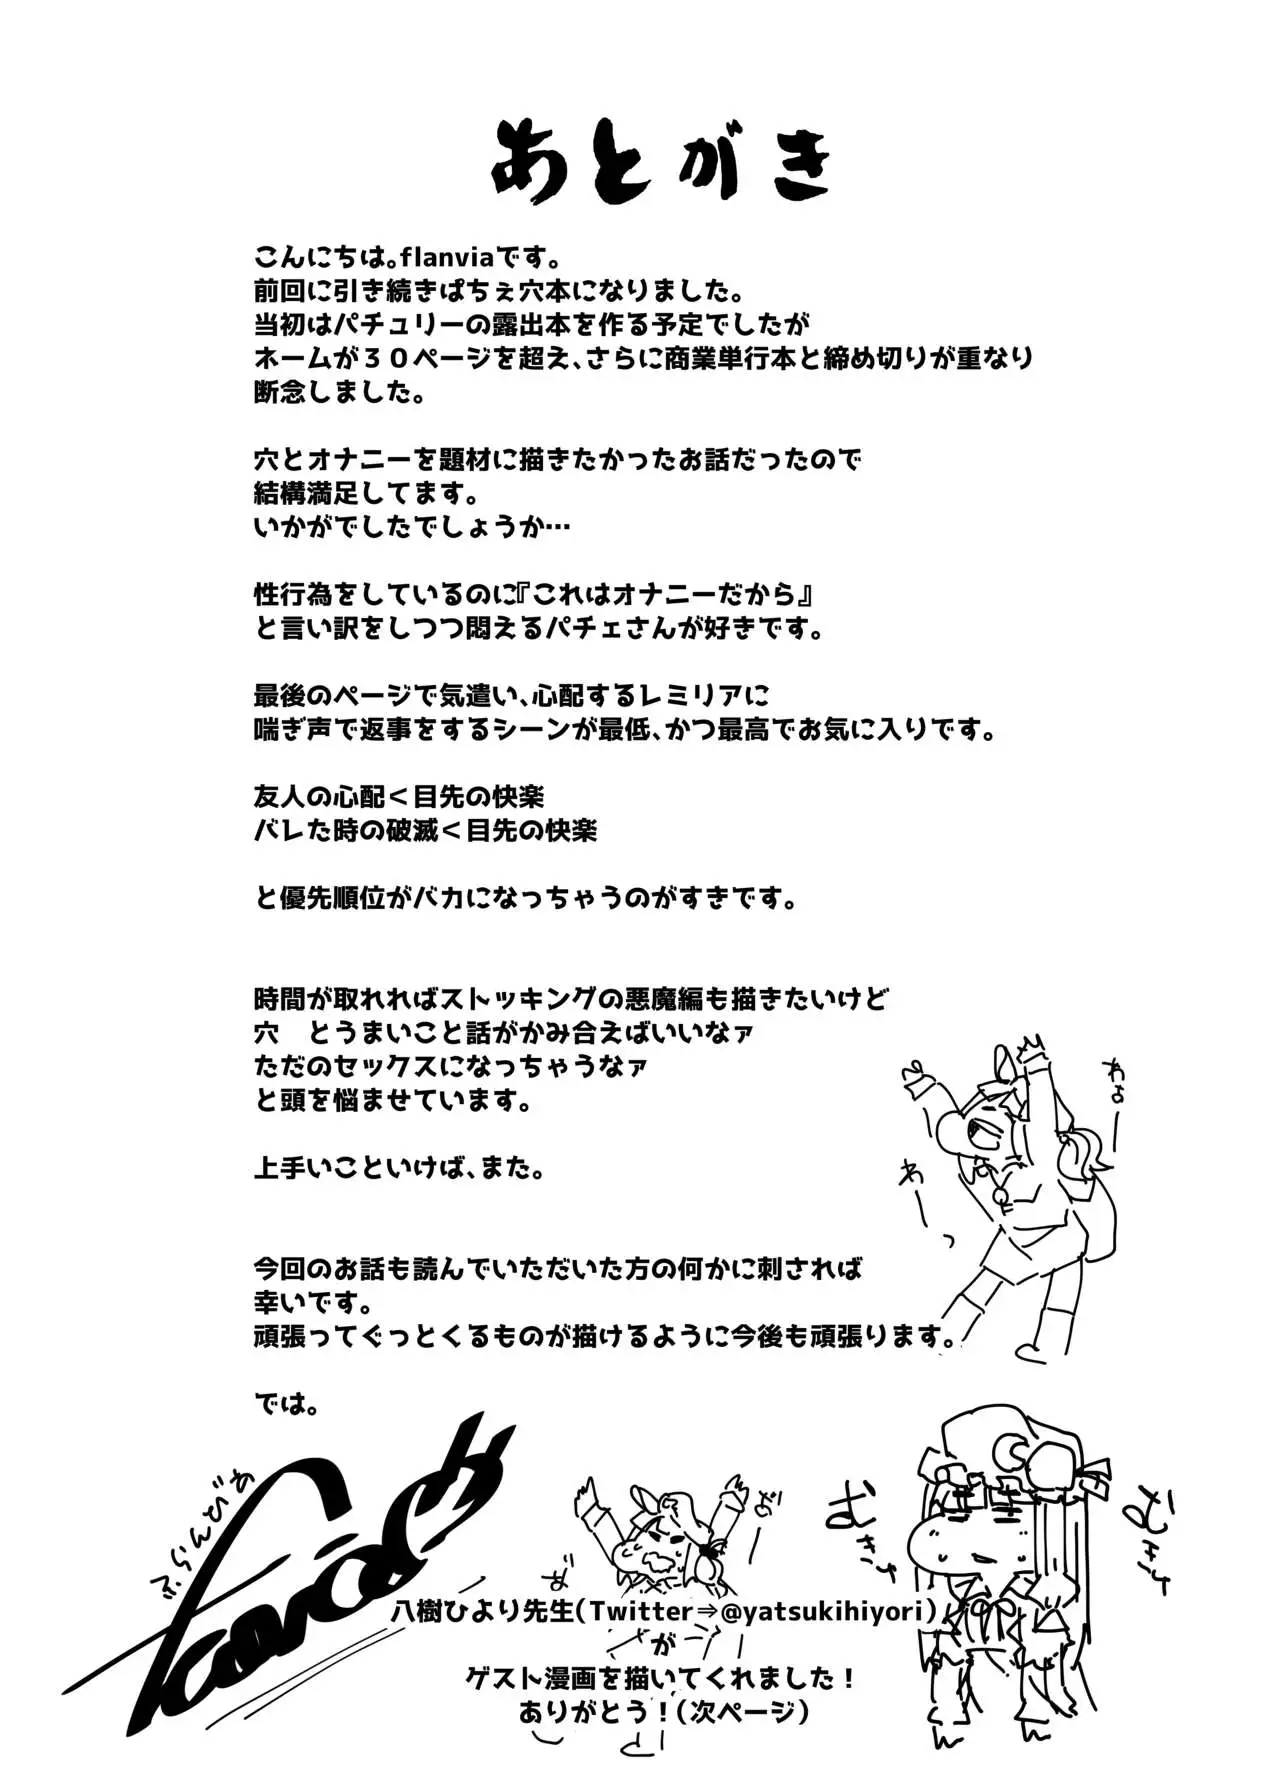 あとがき
こんにちは。flanviaです。
前回に引き続きぱちぇ穴本になりました。
当初はパチュリーの露出本を作る予定でしたが
ネームが３０ページを超え、さらに商業単行本と締め切りが重なり
断念しました。
穴とオナニーを題材に描きたかったお話だったので
結構満足してます。
いかがでしたでしょうか…
性行為をしているのに『これはオナニーだから』
と言い訳をしつつ悶えるパチェさんが好きです。
最後のページで気遣い、心配するレミリアに
喘ぎ声で返事をするシーンが最低、かつ最高でお気に入りです。
友人の心配＜目先の快楽
バレた時の破滅＜目先の快楽
と優先順位がバカになっちゃうのがすきです。
時間が取れればストッキングの悪魔編も描きたいけど
穴　とうまいこと話がかみ合えばいいなァ
ただのセックスになっちゃうなァ
と頭を悩ませています。
上手いこといけば、また。
わよー
わーっ
今回のお話も読んでいただいた方の何かに刺されば
幸いです。
頑張ってぐっとくるものが描けるように今後も頑張ります。
では。
ふらんとびあ
むきゅ
むきゅ
八樹ひより先生（Twitter⇒@yatsukihiyori）
が
ゲスト漫画を描いてくれました！
ありがとう！（次ページ）